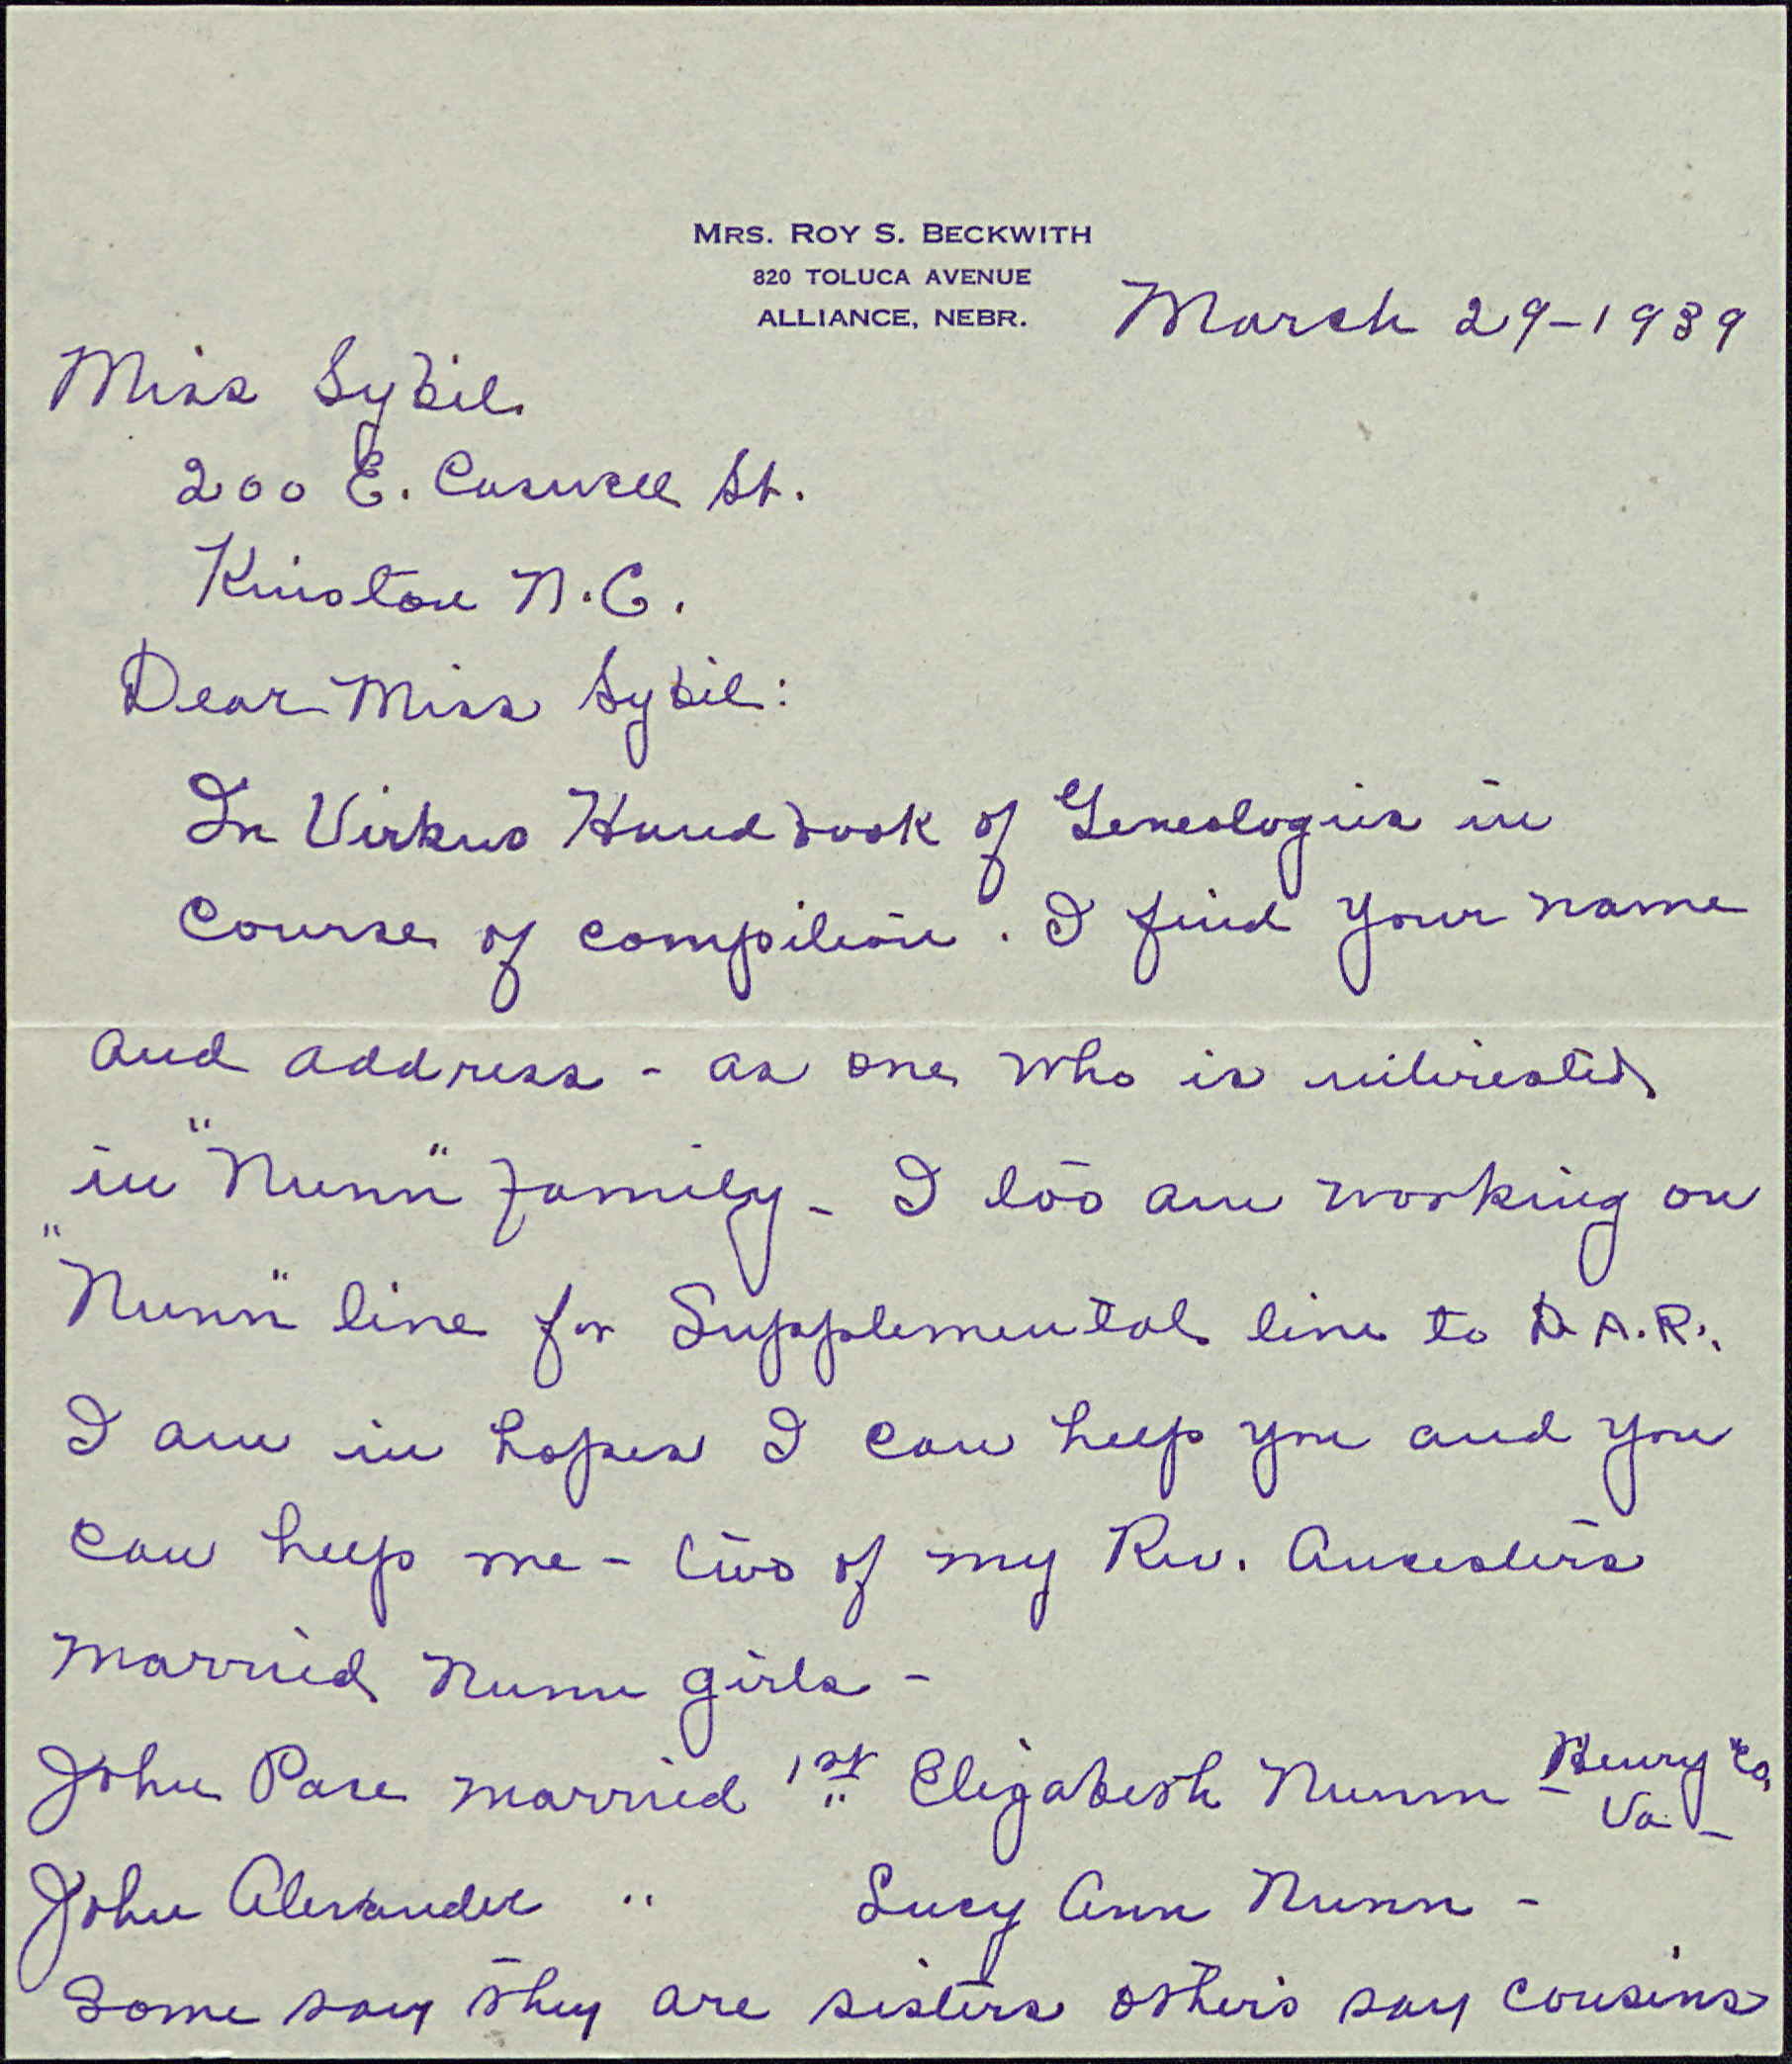 MRS. ROY S. BECKWITH
820 TOLUCA AVENUE
ALLIANCE, NEBR.
March 29-1939
Miss Sybil
200 E. Caswell St.
Kinston N.C.
Dear Miss Sybil:
In Virkus Handbook of Geneologies in
Course of compilion. I find your name
and address - as one who is interested
in "Nunn" family - I too am working on
"Nunn" line for Supplemental line to D.A.R.
I am in hopes I can help you and you
can help me - two of my Rev. Ancesters
married Nunn girls -
John Pace married 1st Elizabeth Nunn - Henry Co,
Va -
John Alexander " Lucy Ann Nunn -
Some say they are sisters others say cousins